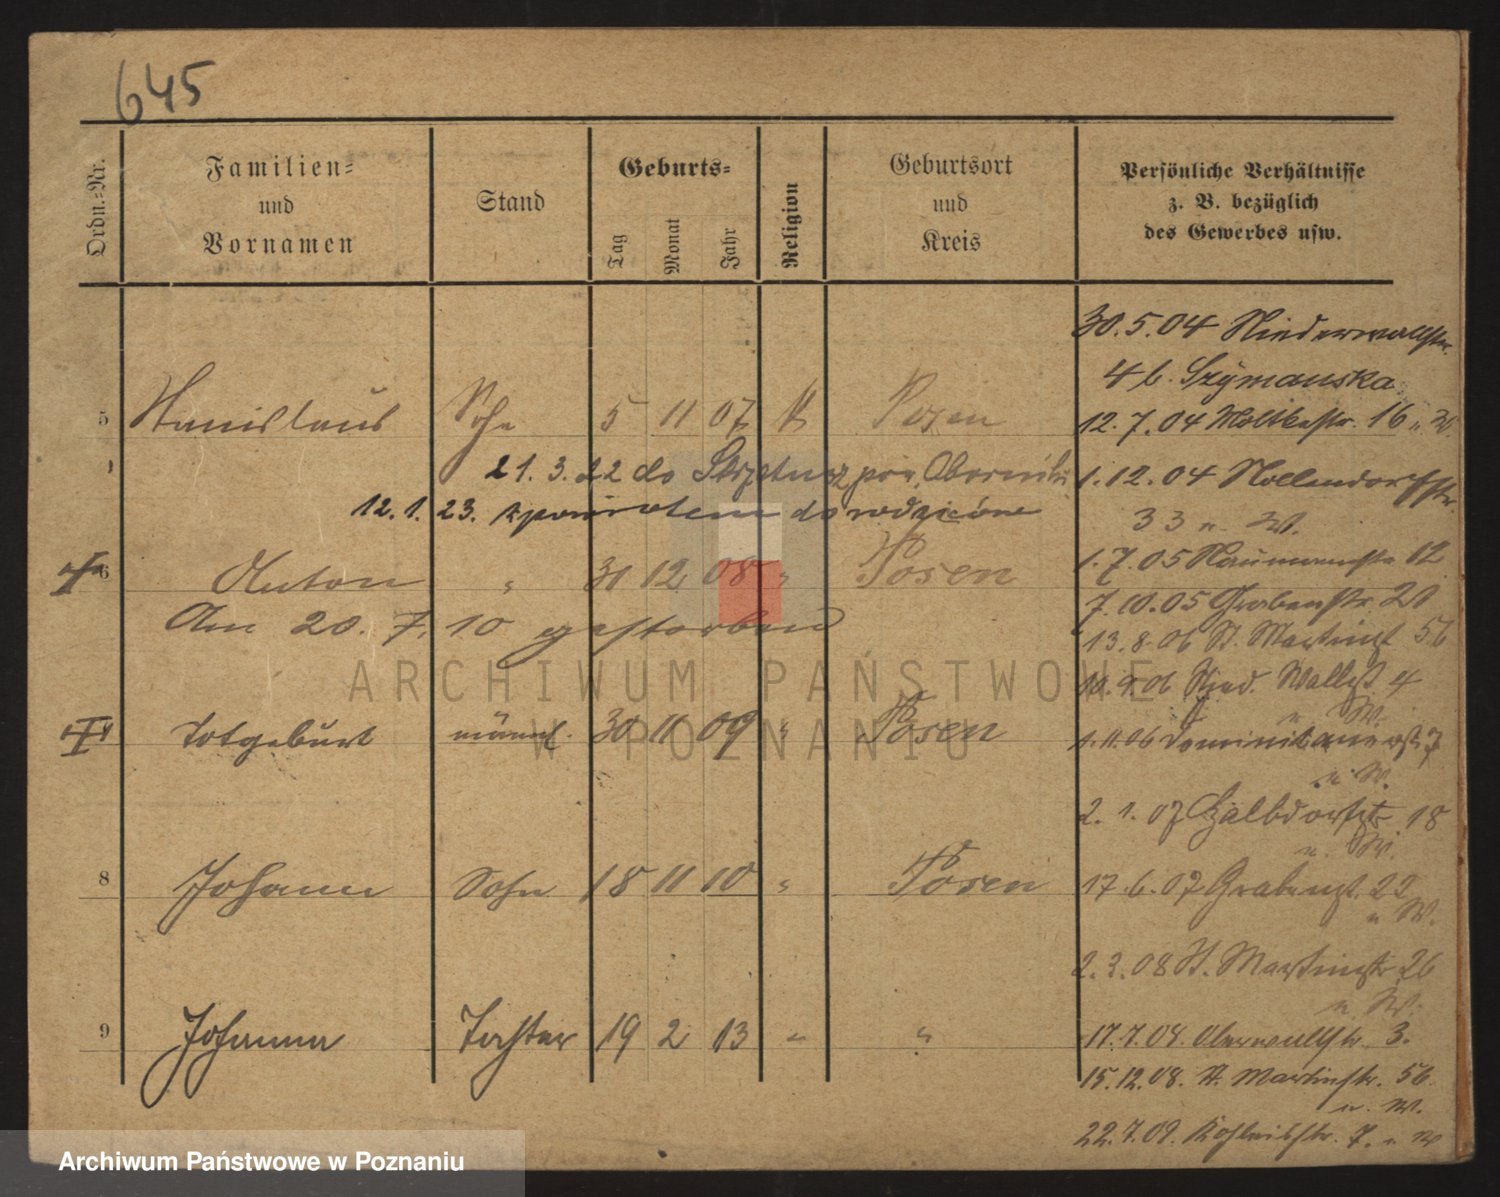 645
Ordn.-Nr.
Familien-
und
Vornamen
Stand
Geburts-
Tag
Monat
Jahr
Religion
Geburtsort
und
Kreis
Persönliche Verhältnisse
z. B. bezüglich
des Gewerbes usw.
30.5.04 Niederwallstr.
4 b. Szymanska
5 Stanislaus Sohn 5 11 07 K Posen
12.7.04 Moltkestr. 16 u. W.
21.3.22 do pow. Oborniki
1.12.04 Nollendorfstr.
12.1.23. zpowrotem do rodziców
33 u. W.
1.7.05 Naumannstr. 12
6 Anton " 31 12 08 " Posen
7.10.05 Grabenstr. 21
Am 20. 7. 10 gestorben
13.8.06 St. Martinst. 56
10.9.06 Nied. Wallst. 4
u. W.
Totgeburt männl. 30 11 09 " Posen
1.11.06 Dominikanerst. 7
u. W.
2.1.07 18
u. W.
8 Johann Sohn 18 11 10 " Posen
17.6.07 Grabenst. 22
u. W.
2.2.08 St. Martinstr. 26
u. W.
9 Johanna Tochter 19 2 13 " "
17.7.08. Oberwallstr. 3.
15.12.08. St. Martinstr. 56.
u. W.
22.7.09. 7. u. W
ARCHIWUM PAŃSTWOWE
W POZNANIU
Archiwum Państwowe w Poznaniu